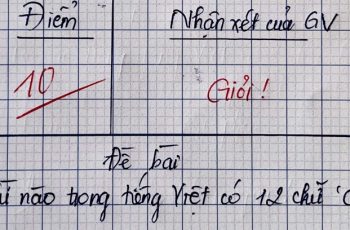 Điểm
Nhận xét của GV
10
Giỏi!
Đề bài
nào trong tiếng Việt có 12 chữ 'C